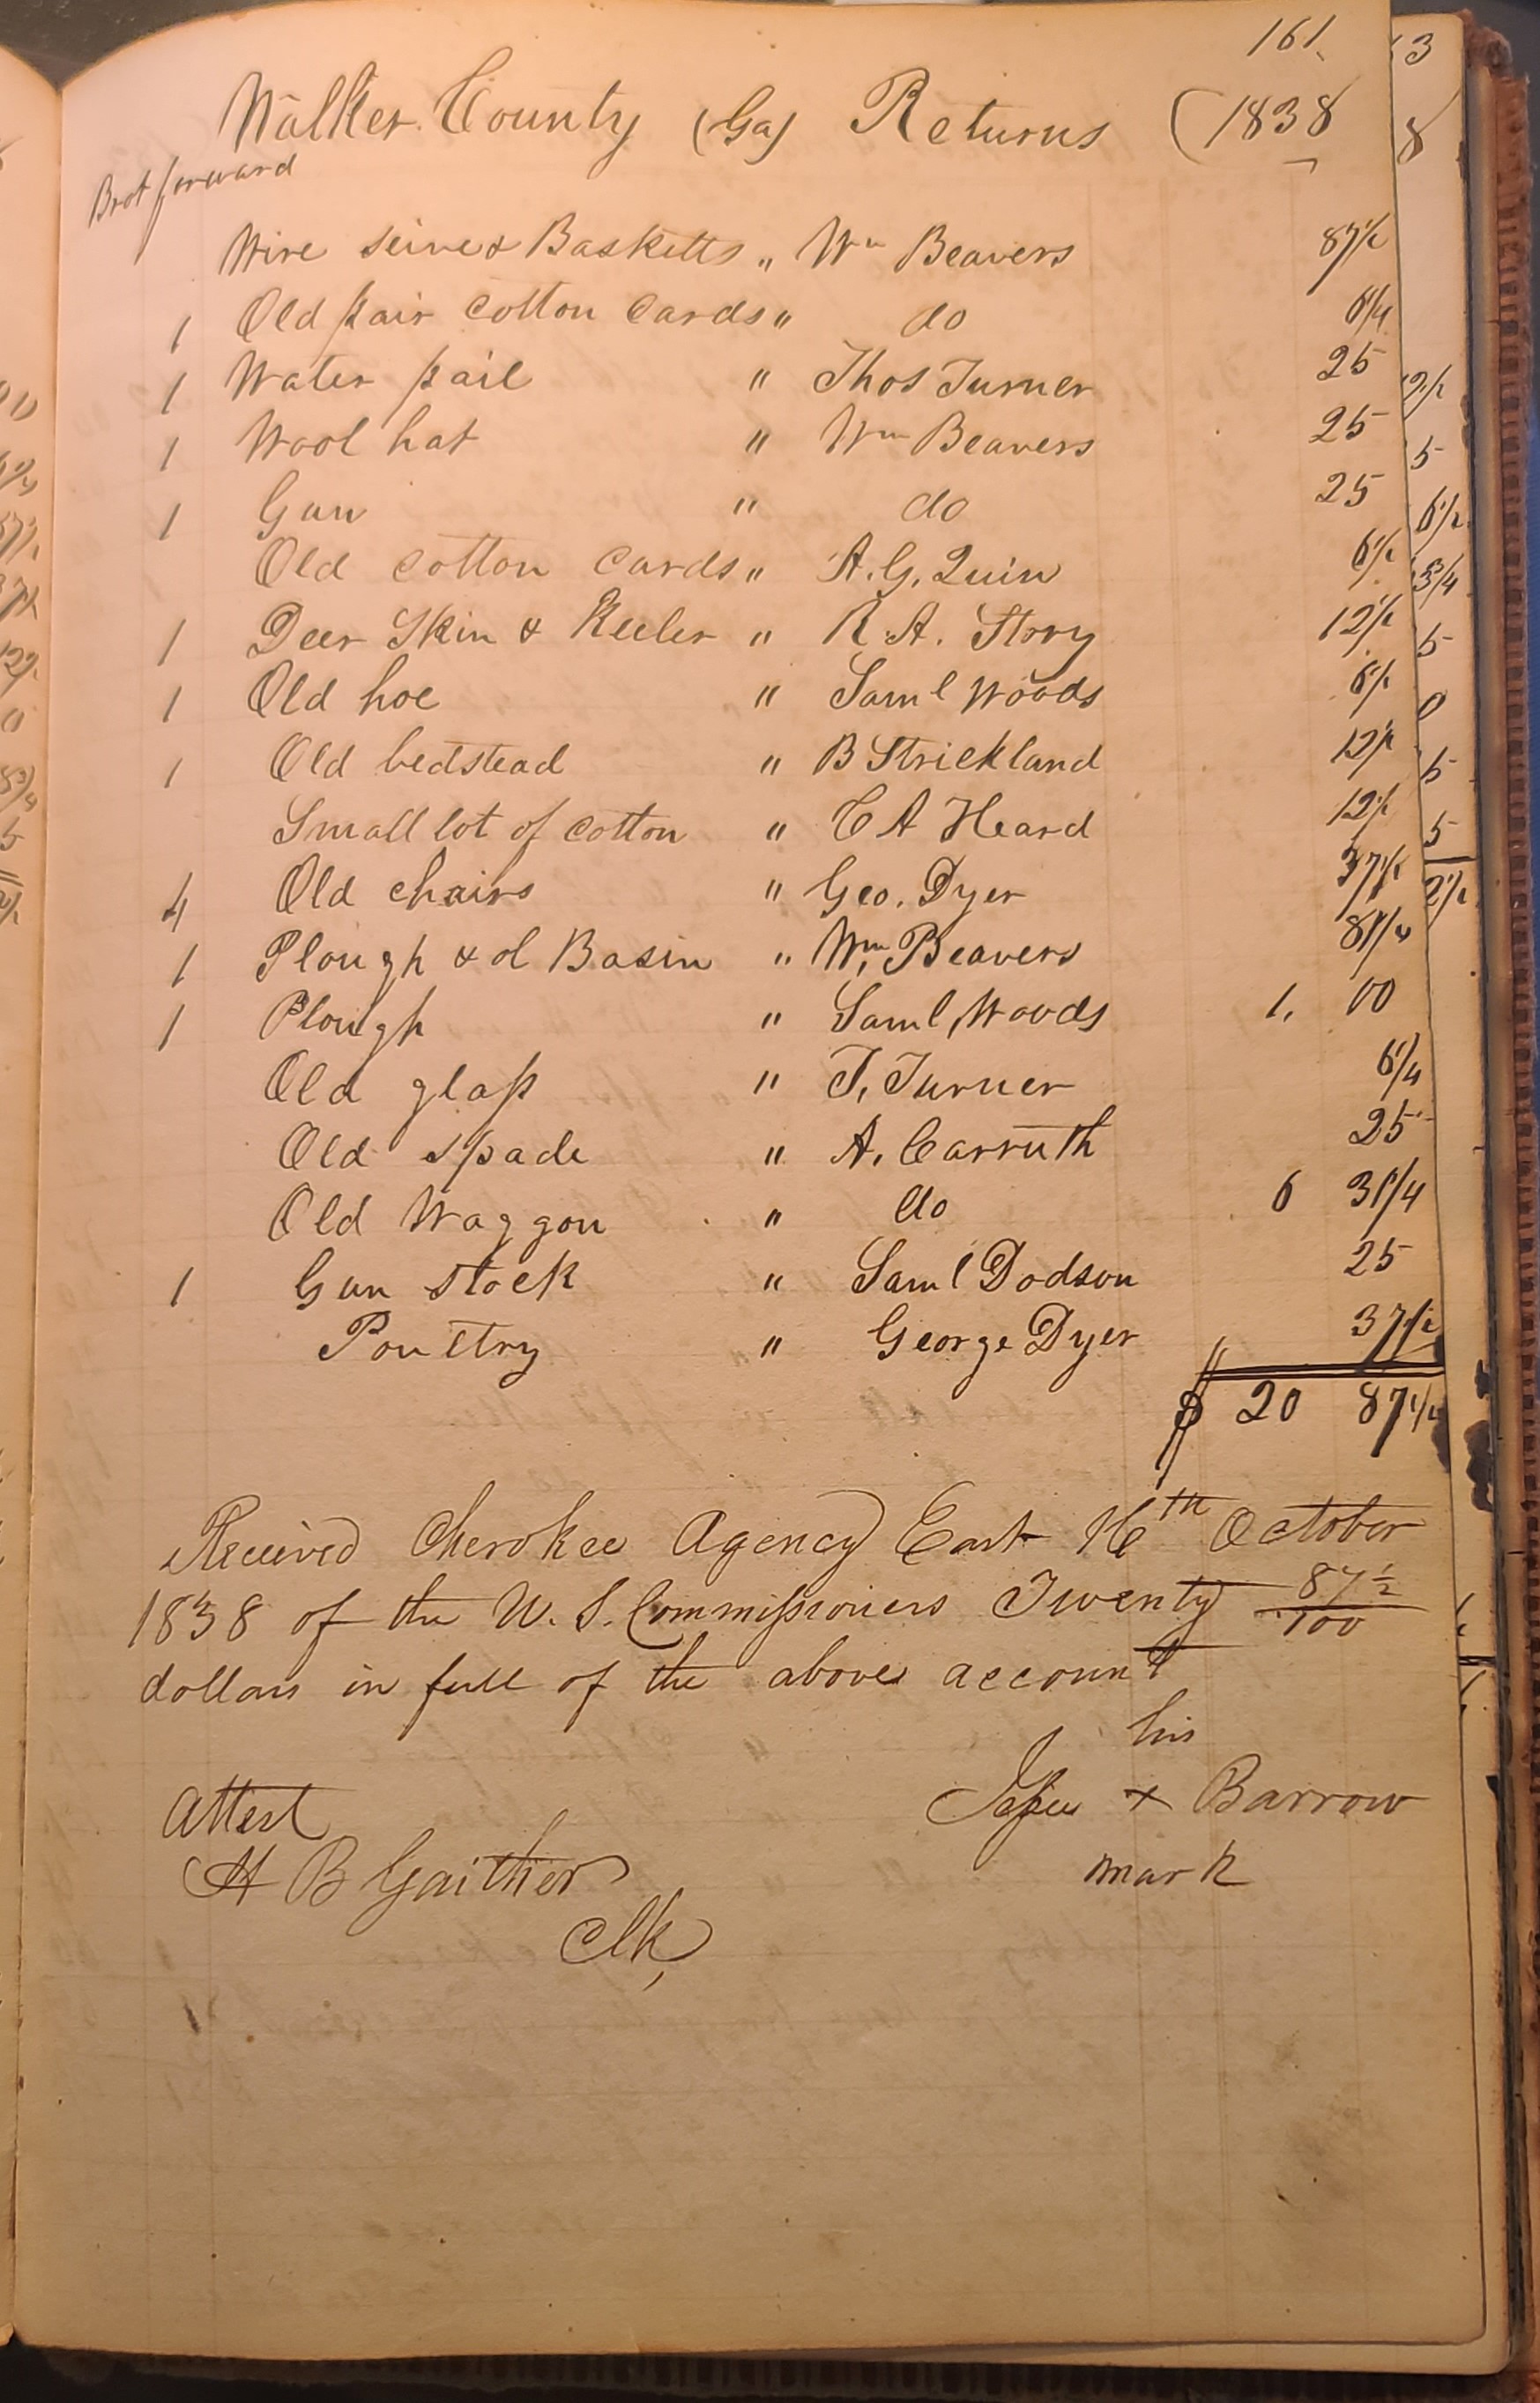 161
Walker County (Ga) Returns (1838
Brot forward
Wire seive & Basketts " Wm Beavers 87 1/2
1 Old pair cotton Cards " do 6 1/4
1 Water pail " Thos Turner 25
1 Wool hat " Wm Beavers 25
1 Gun " do 25
Old cotton Cards " A. G. Quin
1 Deer Skin & Keeler " R. A. Story 12 1/2
1 Old hoe " Saml Woods
1 Old bedstead " B Strickland 12 1/2
Small lot of cotton " C A Heard 12 1/2
4 Old chairs " Geo. Dyer 37 1/2
1 Plough & ol Basin " Wm Beavers 81 1/4
1 Plough " Saml Woods 1. 00
Old glass " T. Turner 6 1/4
Old spade " A. Carruth 25
Old Waggon " do 6 31 1/4
1 Gun stock " Saml Dodson 25
Poultry " George Dyer 37 1/2
$ 20 87 1/2
Received Cherokee Agency East 16th October
1838 of the U. S. Commissioners Twenty 87 1/2/100
dollars in full of the above account
his
Jesse x Barrow
mark
Attest
H B Gaither
Clk,